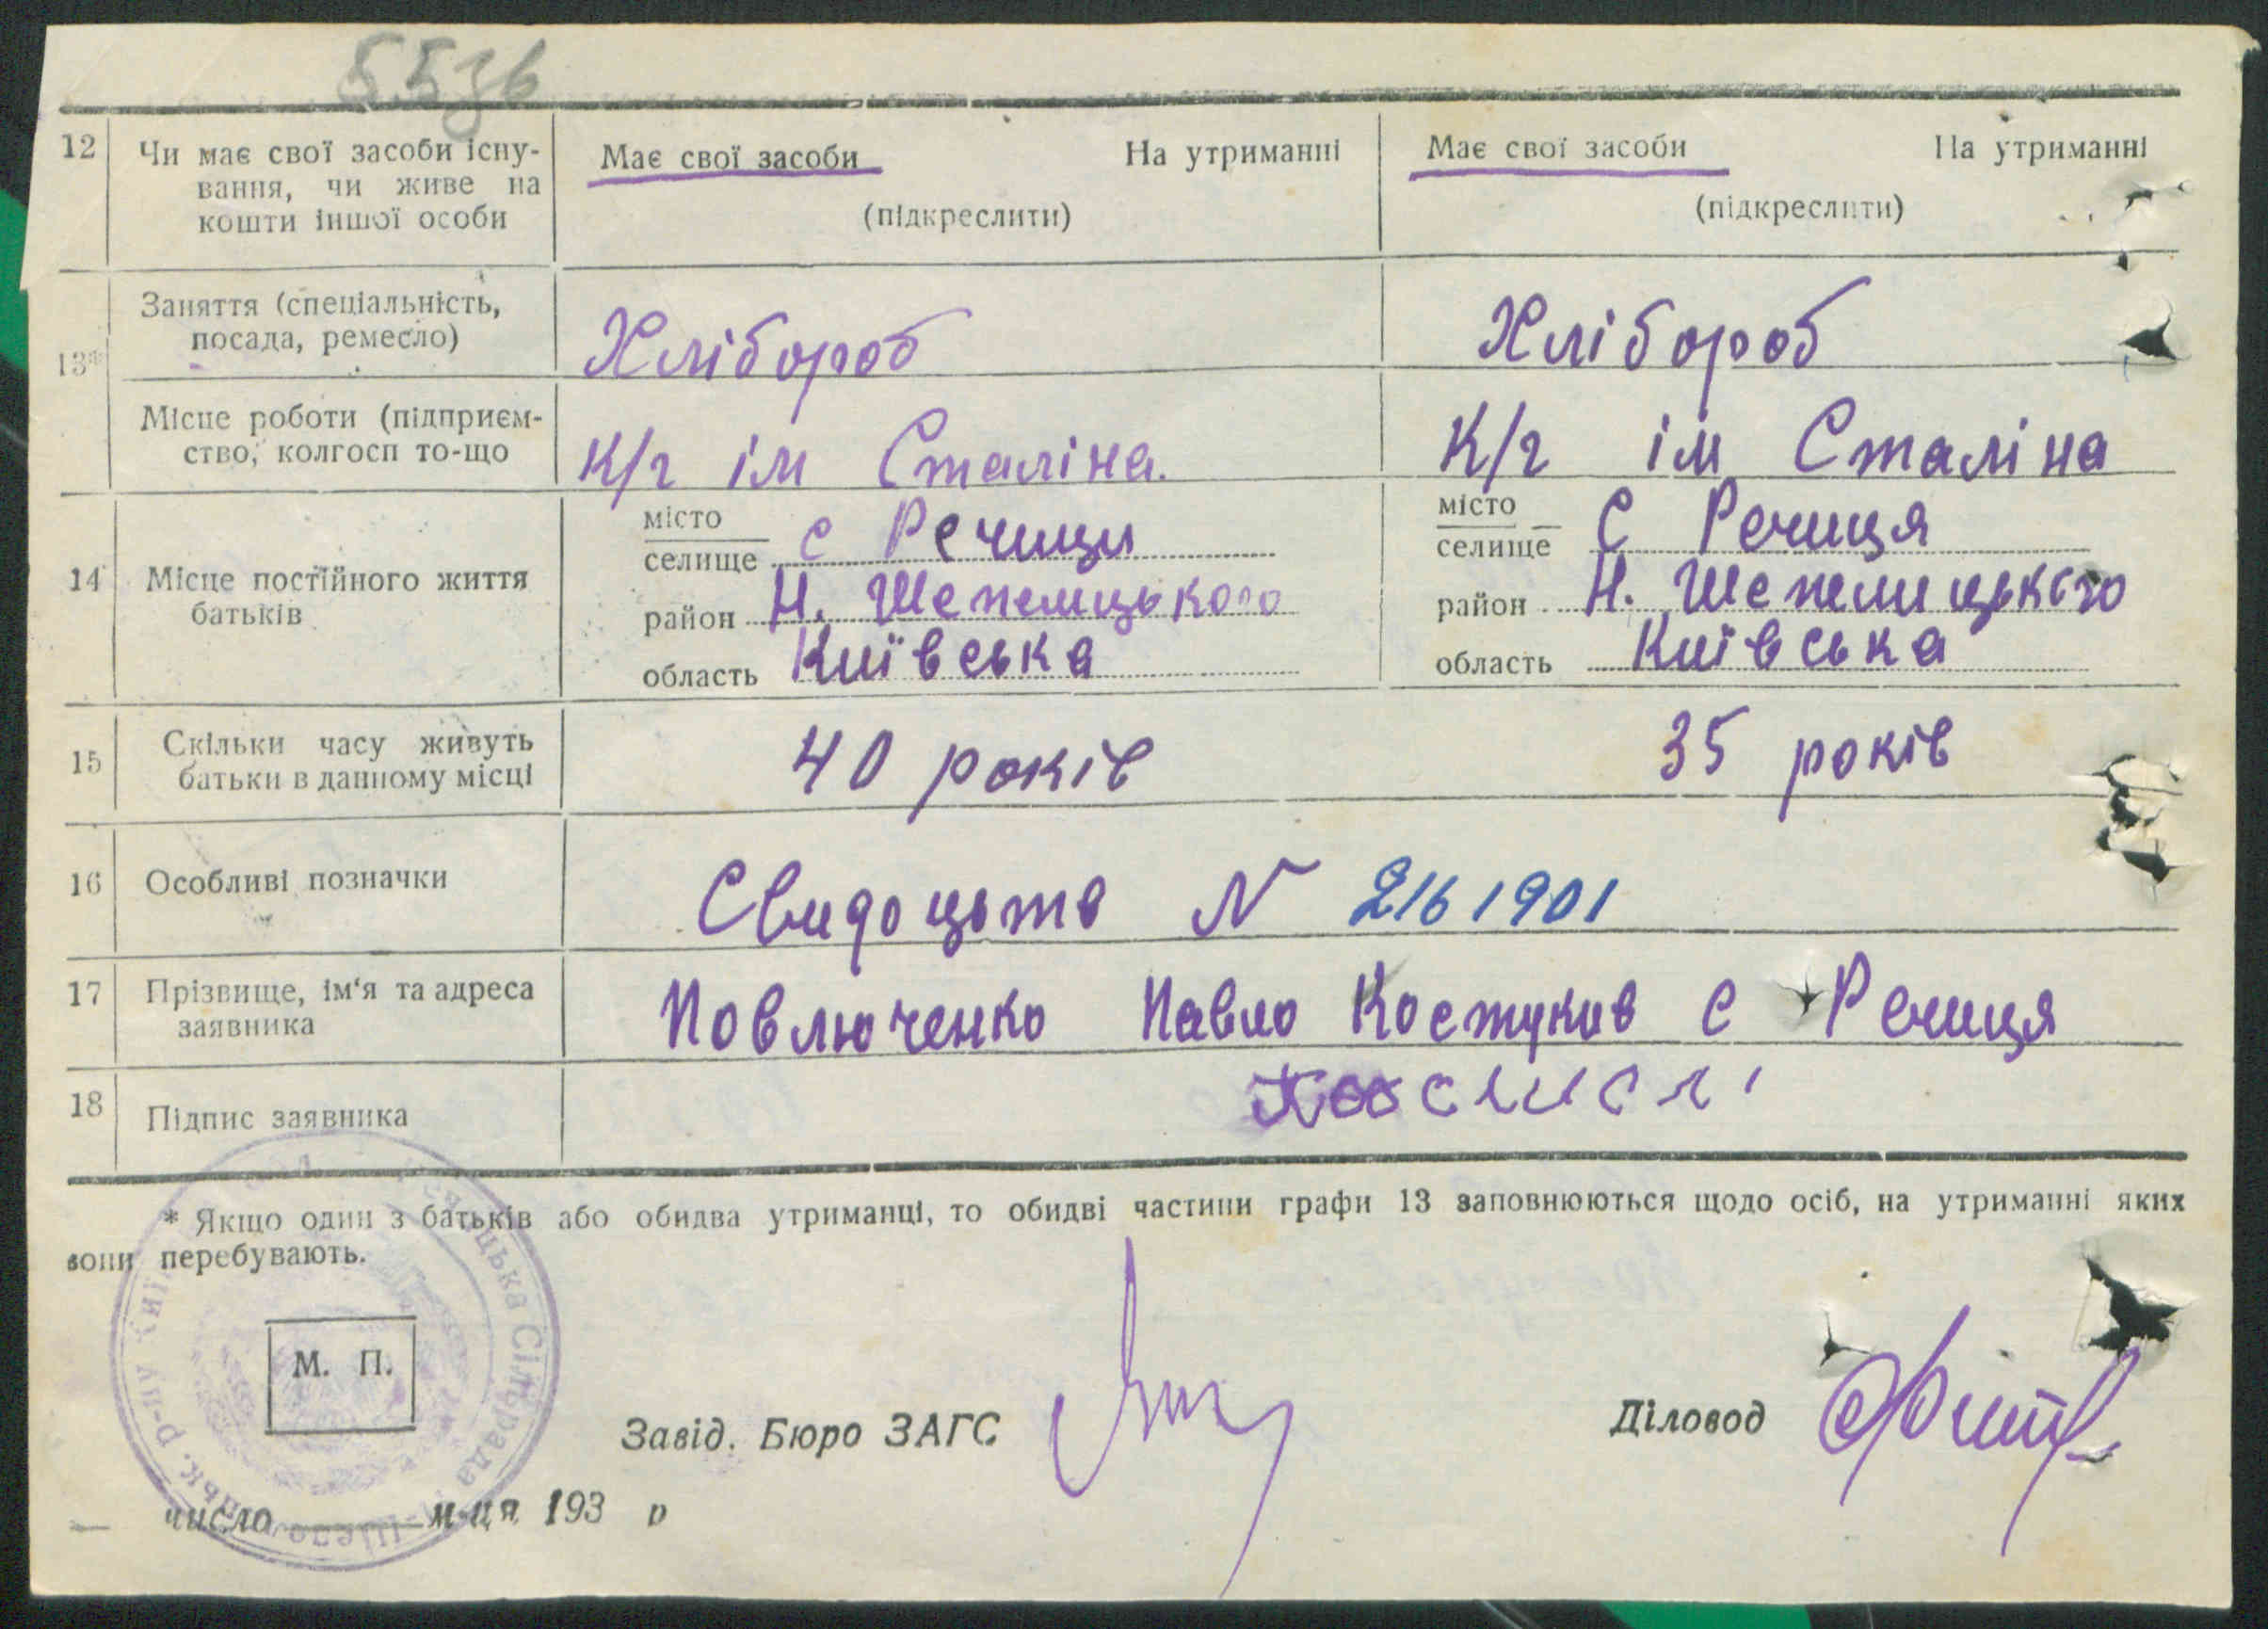 12 Чи має свої засоби існу- Має свої засоби На утриманні Має свої засоби На утриманні
вання, чи живе на
кошти іншої особи (підкреслити) (підкреслити)
Заняття (спеціальність,
посада, ремесло) Хлібороб Хлібороб
13*
Місце роботи (підприєм-
ство, колгосп то-що К/г ім Сталіна. К/г ім Сталіна
місто місто
селище с Речици селище С Речиця
14 Місце постійного життя
батьків район Н. Шепелицького район Н. Шепелицького
область Київська область Київська
15 Скільки часу живуть
батьки в данному місці 40 років 35 років
16 Особливі позначки Свидоцьтво N 2161901
17 Прізвище, ім'я та адреса
заявника Повлюченко Павло Костуков с Речиця
18 Підпис заявника
* Якщо один з батьків або обидва утриманці, то обидві частини графи 13 заповнюються щодо осіб, на утриманні яких
вони перебувають.
М. П.
Завід. Бюро ЗАГС Діловод
число м-ця 193 р